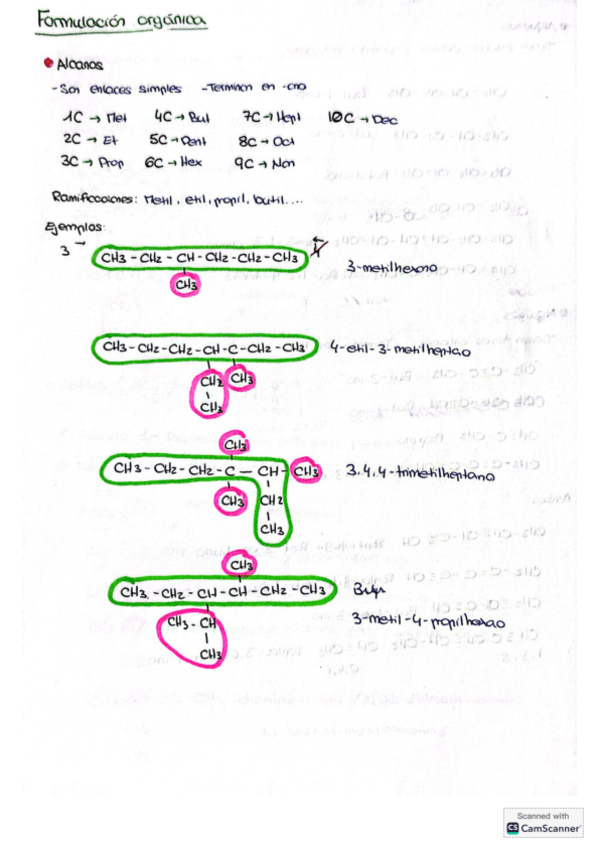 Formulación orgánica
Alcanos
-Son enlaces simples -Terminan en -ano
1C → Met 4C → But 7C → Hept 10C → Dec
2C → Et 5C → Pent 8C → Oct
3C → Prop 6C → Hex 9C → Non
Ramificaciones: Metil, etil, propil, butil....
Ejemplos:
3 → CH3 - CH2 - CH - CH2 - CH2 - CH3 ← 4
CH3
3-metilhexano
CH3 - CH2 - CH2 - CH - C - CH2 - CH3
CH2 CH3
CH3
4-etil-3-metilheptao
CH3
CH3 - CH2 - CH2 - C - CH - CH3
CH3 CH2
CH3
3.4.4-trimetilheptano
CH3
CH3 - CH2 - CH - CH - CH2 - CH3
CH3 - CH
CH3
3-metil-4-propilhexao
Scanned with
CS CamScanner